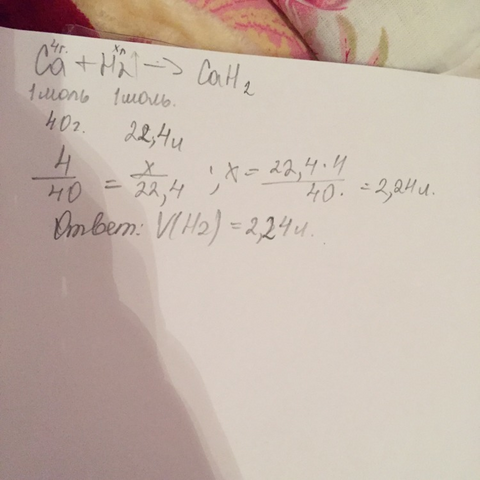 4г. х л
Ca + H2↑ → CaH2
1 моль 1 моль.
40г. 22,4л
4/40 = x/22,4 ; x = 22,4·4/40. = 2,24л.
Ответ: V(H2) = 2,24л.